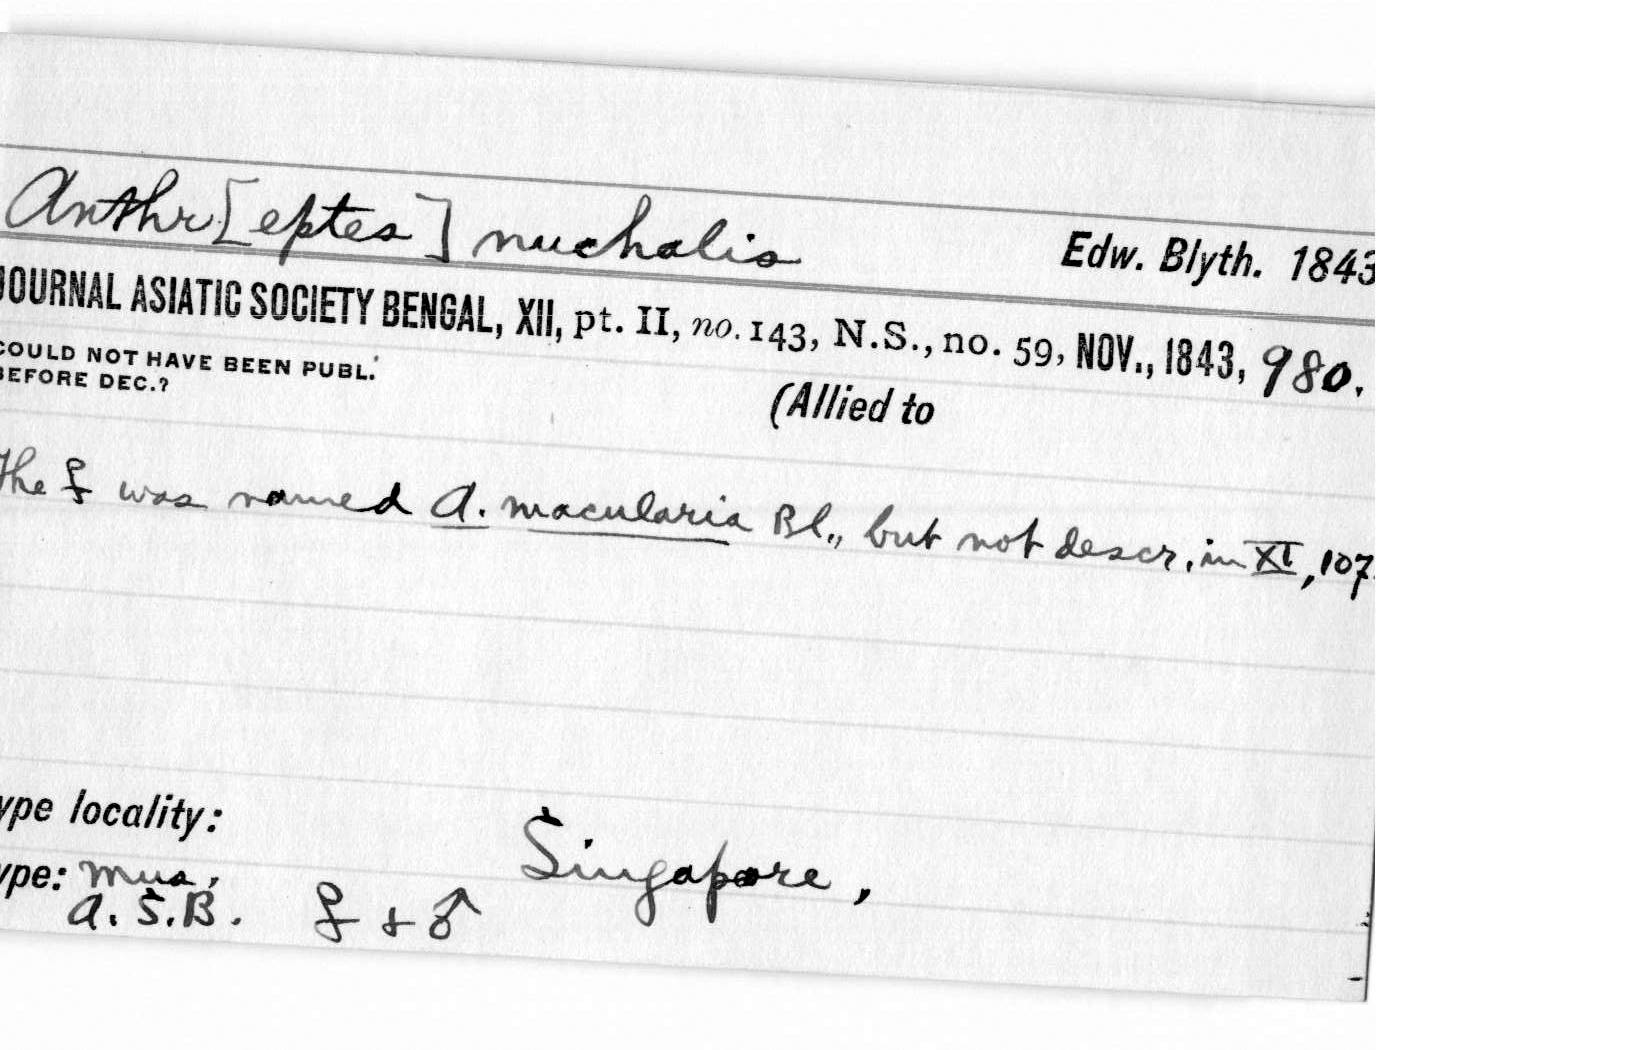 Anthr[eptes] nuchalis
Edw. Blyth. 1843
JOURNAL ASIATIC SOCIETY BENGAL, XII, pt. II, no. 143, N.S., no. 59, NOV., 1843, 980.
COULD NOT HAVE BEEN PUBL.
BEFORE DEC.?
(Allied to
The ♀ was named A. macularia Bl., but not descr. in XI, 107
ype locality:
Singapore,
ype: Mus.
A.S.B. ♀ + ♂